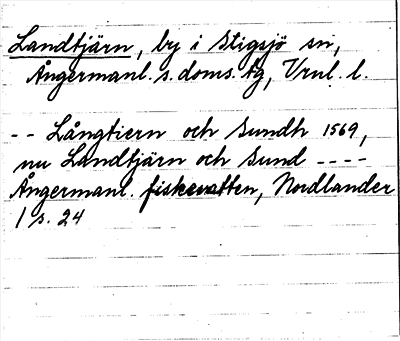 Landtjärn, by i Stigsjö sn,
Ångermanl. s. doms. tg, Vrnl. l.
-- Långtiern och Sundh 1569,
nu Landtjärn och Sund ----
Ångermanl. fiskevatten, Nordlander
1 s. 24